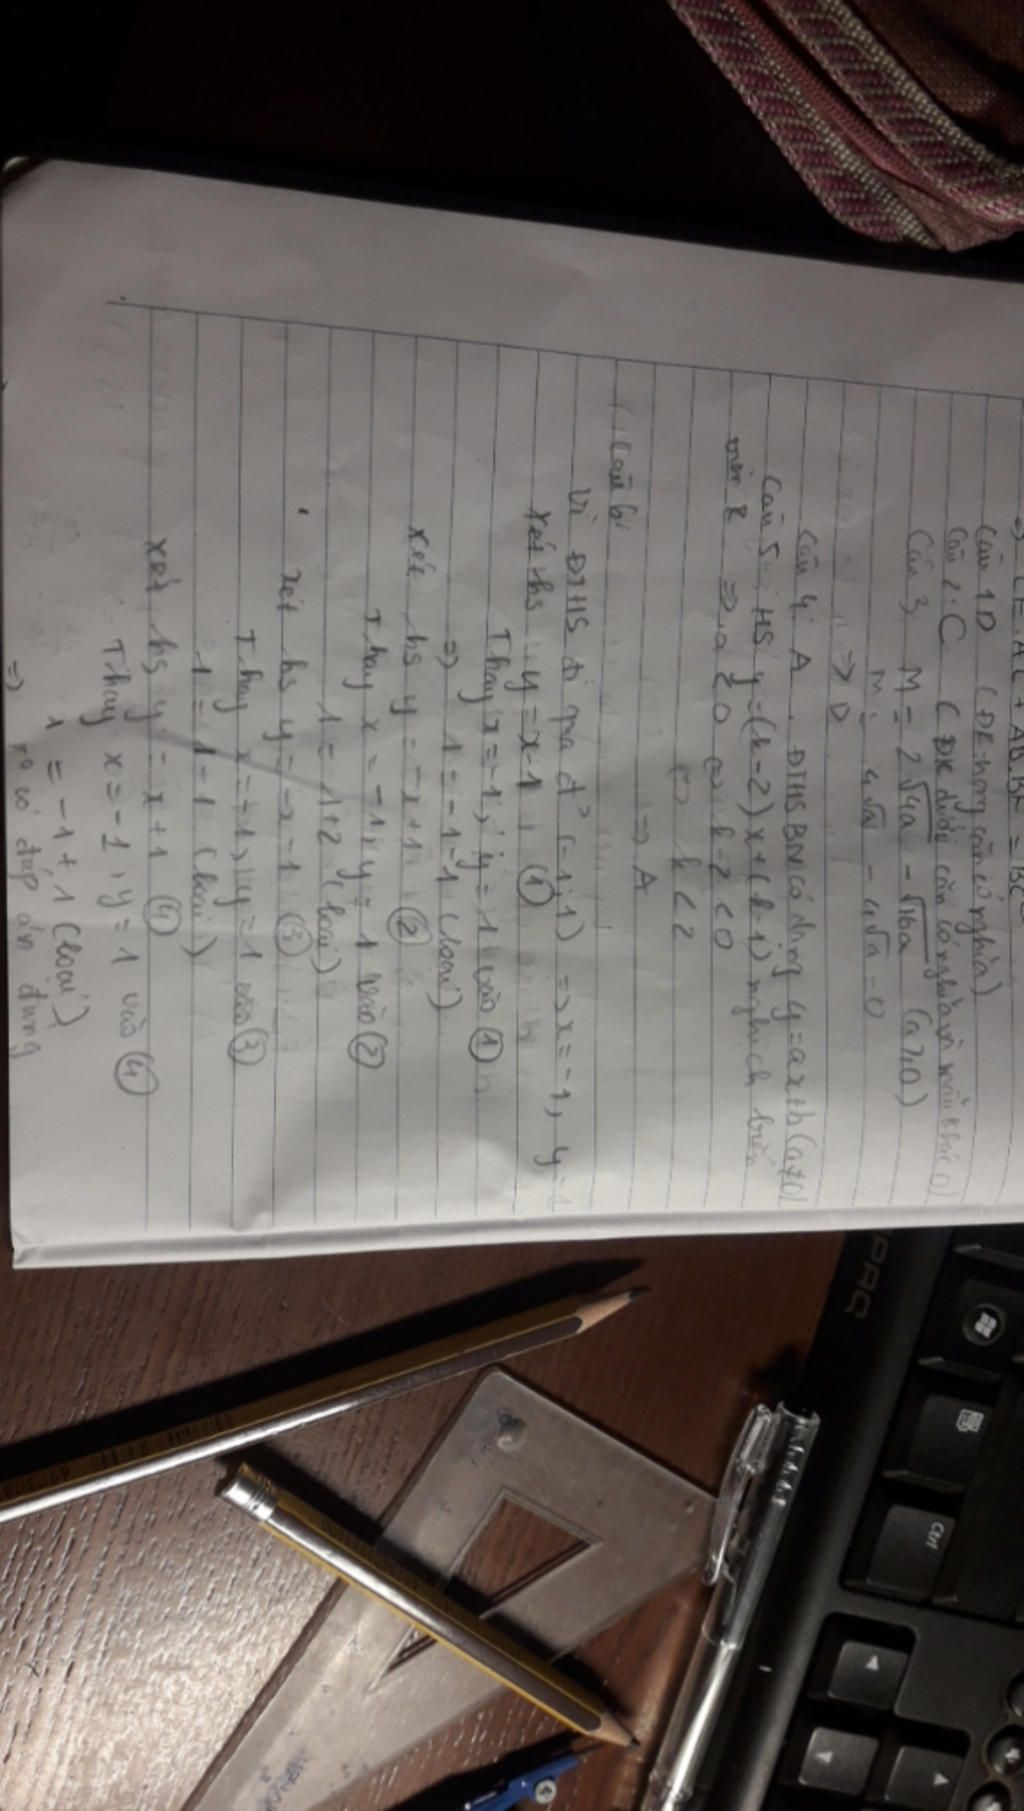 =) CE.AC + AB.BK = BC²
Câu 1 D (ĐK trong căn có nghĩa)
Câu 2: C (ĐK dưới căn có nghĩa và mẫu khác 0)
Câu 3 M = 2√4a - √16a (a≥0)
M = 4√a - 4√a = 0
=> D
Câu 4: A. ĐTHSBN có dạng y=ax+b (a≠0)
Câu 5 HS y=(k-2)x+(k-1) nghịch biến
trên R => a < 0 <=> k-2<0
<=> k<2
=> A
Câu 6:
Vì ĐTHS đi qua đ' (-1;1) => x=-1, y=1
xét hs y=x-1 (1)
Thay x=-1, y=1 vào (1)
=> 1=-1-1 (loại)
xét hs y=-x+1 (2)
Thay x=-1, y=1 vào (2)
1=1+2 (loại)
xét hs y=-x-1 (3)
Thay x=-1, y=1 vào (3)
1=1-1 (loại)
xét hs y=x+1 (4)
Thay x=-1, y=1 vào (4)
1=-1+1 (loại)
=> ko có đáp án đúng
COMPAQ
Ctrl